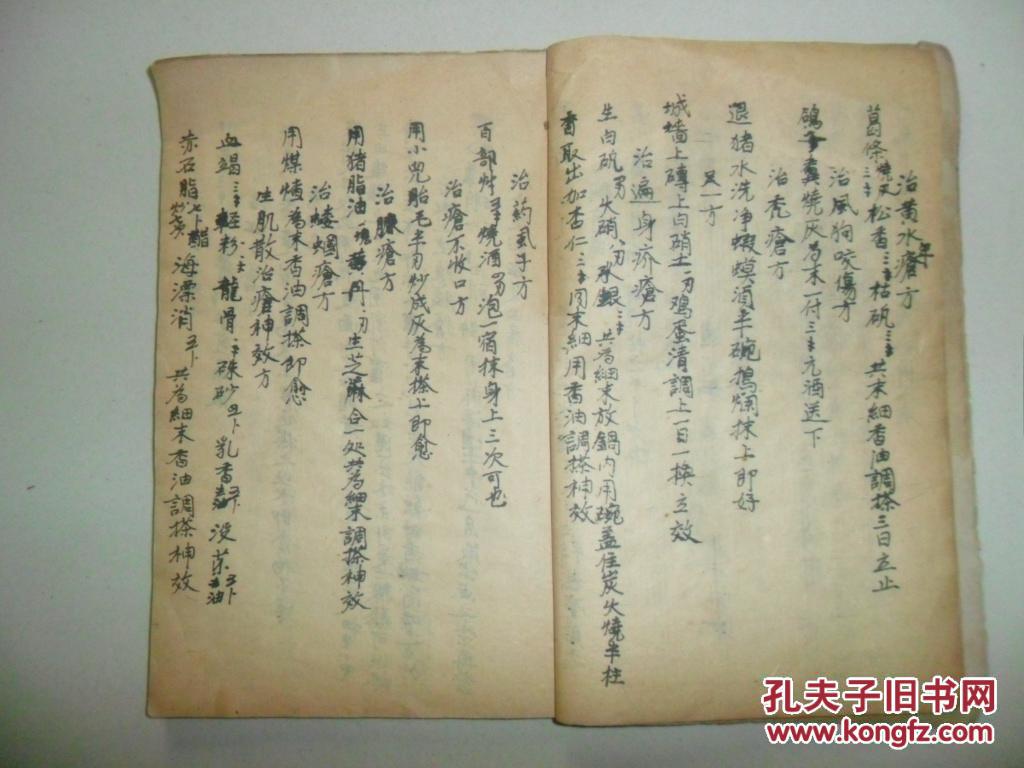 治黄水瘡方
葛條燒灰三錢松香三錢枯矾三錢共末細香油調搽三日立止
治風狗咬傷方
鴿子糞燒灰為末一付三錢元酒送下
治禿瘡方
退猪水洗净蝦蟆酒半碗搗爛抹上即好
又一方
城墻上磚上白硝土一刃鸡蛋清調上一日一换立效
治遍身疥瘡方
生白矾火硝水銀三錢共為細末放鍋内用碗盖住炭火燒半柱
香取出加杏仁三錢同末細用香油調搽神效
治药虱子方
百部艸燒酒泡一宿抹身上三次可也
治瘡不收口方
用小兒胎毛半刃炒成灰為末搽上即愈
治臁瘡方
用猪脂油一塊黄丹一刃生芝蔴合一处共為細末調搽神效
治蝼蝈瘡方
用煤㨾為末香油調搽即愈
生肌散治瘡神效方
血竭三錢輕粉一錢龍骨一錢硃砂五卜乳香五卜没藥五卜去油
赤石脂七卜醋炒海漂消五卜共為細末香油調搽神效
孔夫子旧书网
www.kongfz.com